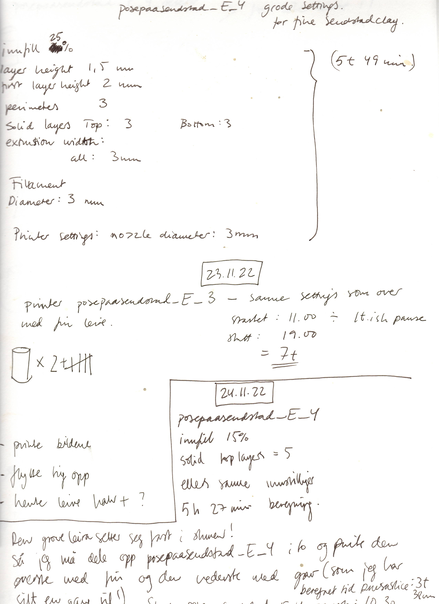 posepaasendstad_E_4 grove settings.
for fine sendstadclay.
innfill 25 %
layer height 1,5 mm
first layer height 2 mm
(5t 49 min)
perimeter 3
Solid layers Top: 3 Bottom: 3
extrution width:
all: 3mm
Filament
Diameter: 3 mm
Printer settings: nozzle diameter: 3mm
23.11.22
printer posepaasendstad_E_3 – samme settings som over
med fin leire.
startet: 11.00 ÷ 1t.ish pause
slutt: 19.00
= 7t
x 2
24.11.22
posepaasendstad_E_4
innfill 15%
solid top layers = 5
ellers samme innstillinger
5h 27 min beregning.
- printe bidene
- flytte tig opp
- hente leire + ?
Den grove leira setter seg fast i
Så jeg må dele opp posepaasendstad_E_4 i to og printe den
øverste med fin og den nederste med grov (som jeg har
beregnet til 3t